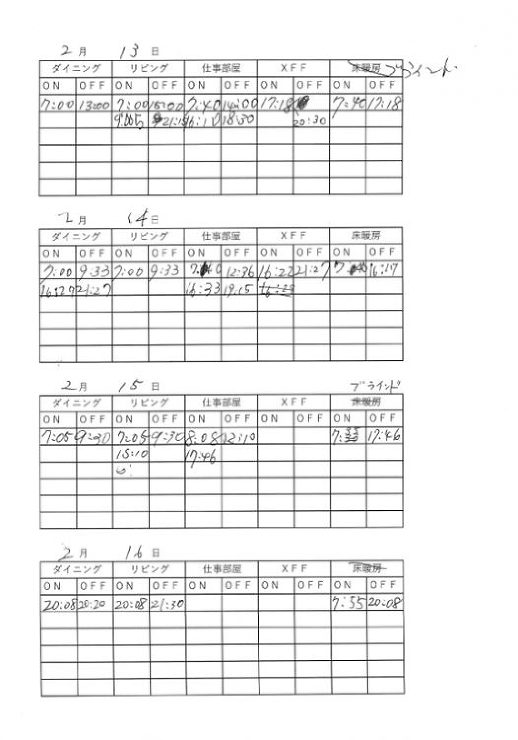 2月 13日
ダイニング リビング 仕事部屋 XFF 床暖房 ブラインド
ON OFF ON OFF ON OFF ON OFF ON OFF
7:00 13:00 7:00 15:00 7:40 14:00 17:18 7:40 17:18
16:10 18:30 20:30
2月 14日
ダイニング リビング 仕事部屋 XFF 床暖房
ON OFF ON OFF ON OFF ON OFF ON OFF
7:00 9:33 7:00 9:33 12:36 16:22 21:27 16:17
16:27 21:27 16:33 19:15
2月 15日
ブラインド
ダイニング リビング 仕事部屋 XFF 床暖房
ON OFF ON OFF ON OFF ON OFF ON OFF
7:05 9:30 7:05 9:30 8:08 12:10 17:46
15:10 17:46
2月 16日
ダイニング リビング 仕事部屋 XFF 床暖房
ON OFF ON OFF ON OFF ON OFF ON OFF
20:08 20:20 20:08 21:30 7:55 20:08